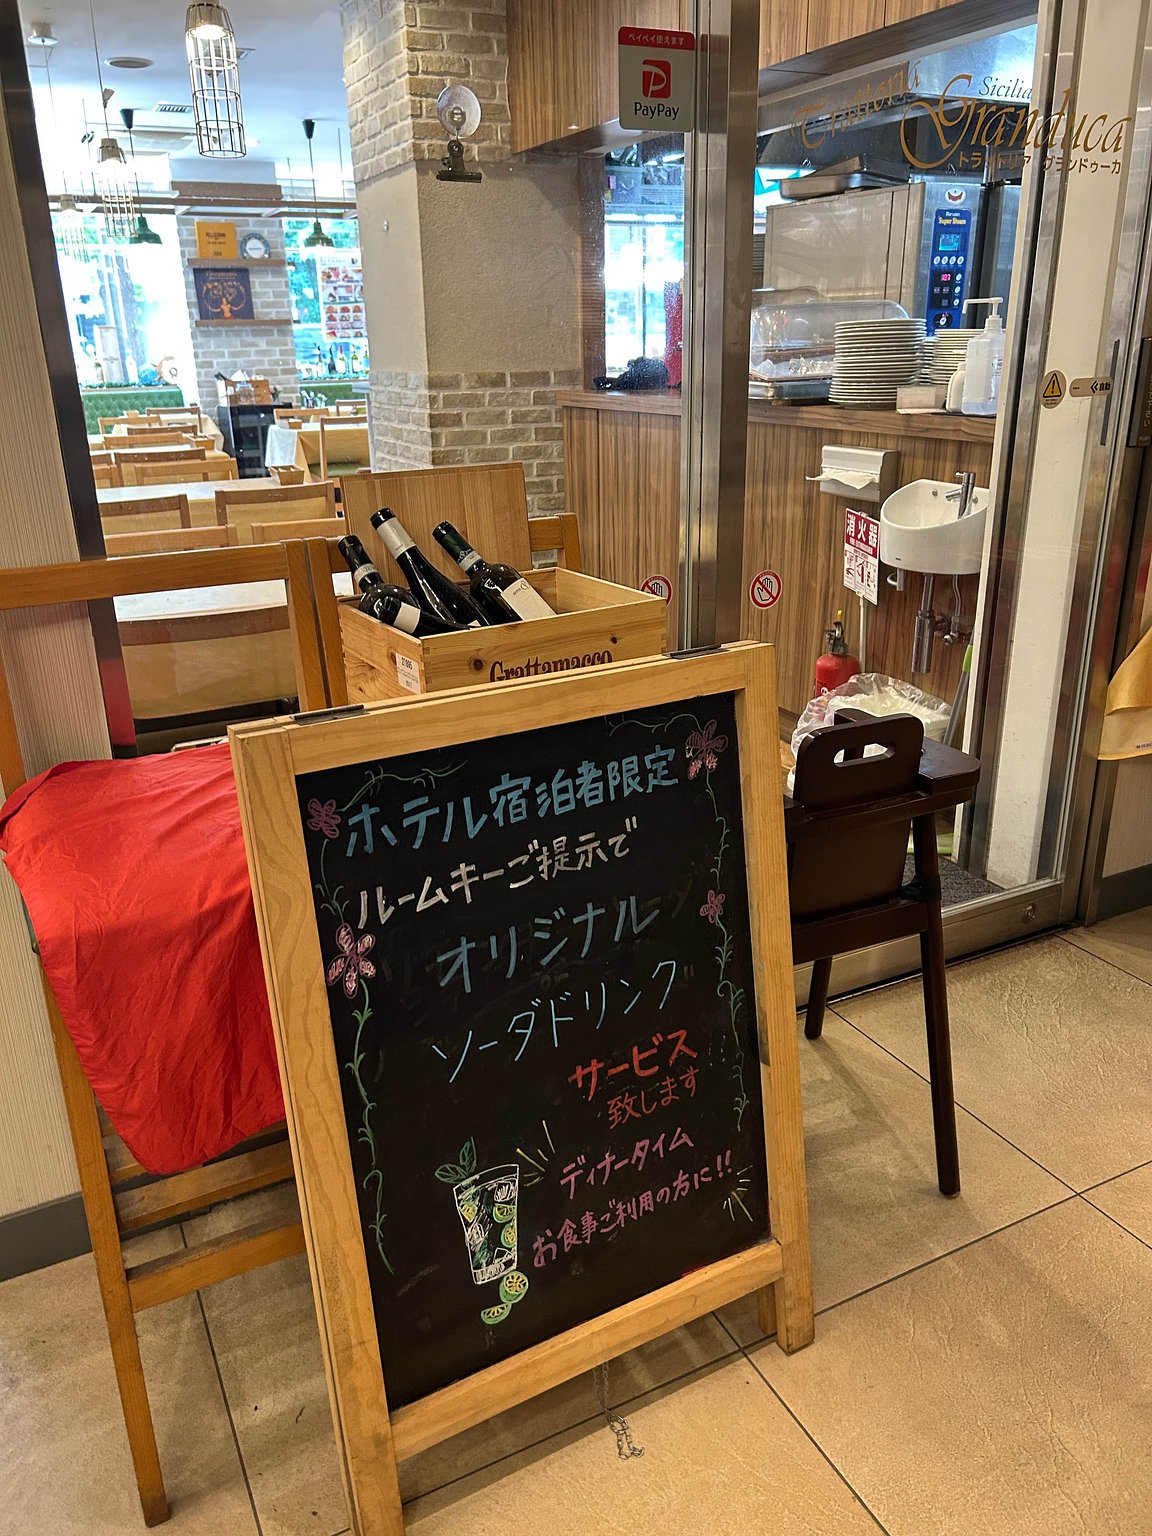 ペイペイ使えます
PayPay
Sicilia
Trattoria
Granduca
トラットリア グランドゥーカ
Super Steam
自動
消火器
Grattamacco
ホテル宿泊者限定
ルームキーご提示で
オリジナル
ソーダドリンク
サービス
致します
ディナータイム
お食事ご利用の方に!!